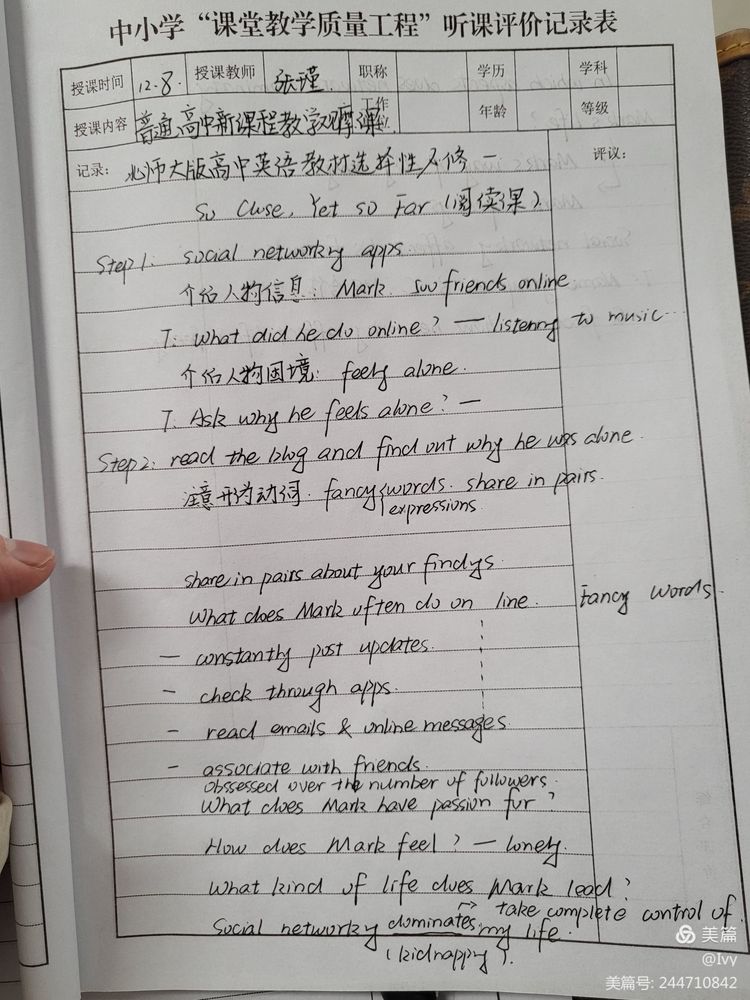 中小学“课堂教学质量工程”听课评价记录表
授课时间 12.8. 授课教师 张瑾 职称 学历 学科
授课内容 普通高中新课程教学观摩课 工作 位 年龄 等级
记录: 北师大版高中英语教材选择性必修一 评议:
So Close, Yet so Far (阅读课)
Step1: social networky apps.
介绍人物信息: Mark 500 friends online
T: what did he do online? — listenng to music...
介绍人物困境: feely alone.
T. Ask why he feels alone? —
Step2: read the blog and find out why he was alone.
注意形为动词. fancy { words. share in pairs.
expressions.
share in pairs about your findys.
What does Mark often do on line. Fancy words.
— constantly post updates.
— check through apps.
- read emails & online messages
- associate with friends.
obssessed over the number of followers.
What does Mark have passion for?
How does Mark feel? — lonely.
What kind of life does Mark lead?
→ take complete control of
Social networky dominates my life.
(kidnappy).
美篇
@Ivy
美篇号: 244710842